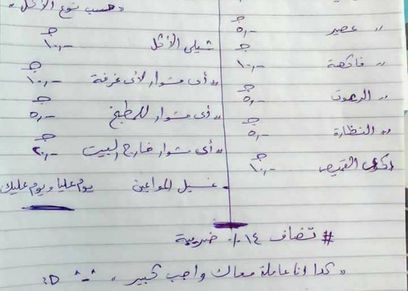 " حسب نوع الأكل "
" عصير ٥,-- ج
شيلى الأكل ١٠,-- ج
" فاكهة ١٠,-- ج
" أى مشوار لأى غرفة ١٠,-- ج
" الريموت ٥,-- ج
" أى مشوار للمطبخ ٥,-- ج
" النظارة ٥,-- ج
" أى مشوار خارج البيت ٢٠,-- ج
كوى القميص ١٠,-- ج
- غسيل المواعين يوم عليا ويوم عليك
# تضاف ١٤ ٪ ضريبة
" كدا انا عاملة معاك واجب كبير " :D